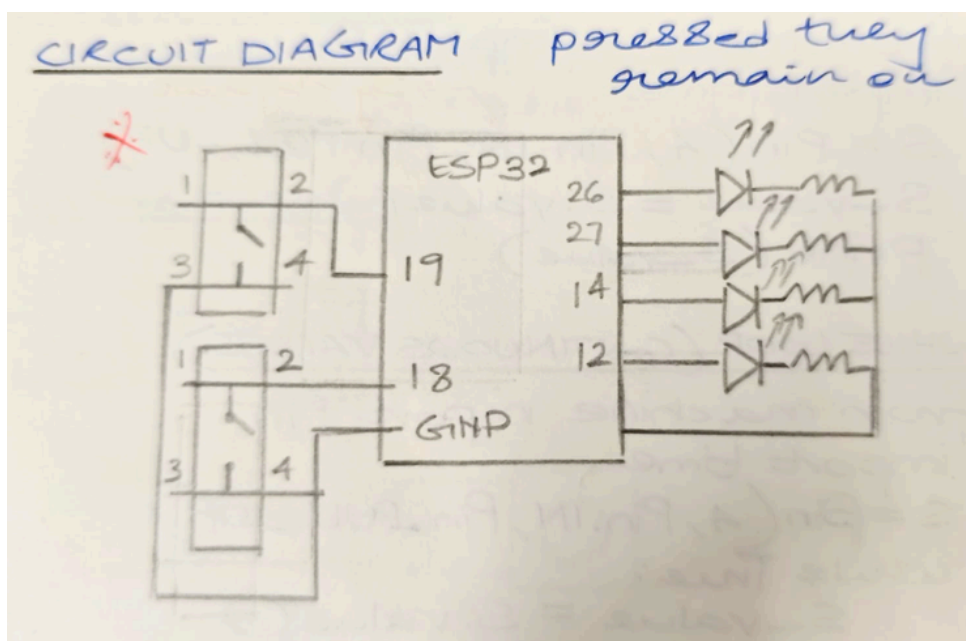 CIRCUIT DIAGRAM
pressed they
remain on
ESP32
1 2
3 4
19
1 2
3 4
18
GND
26
27
14
12